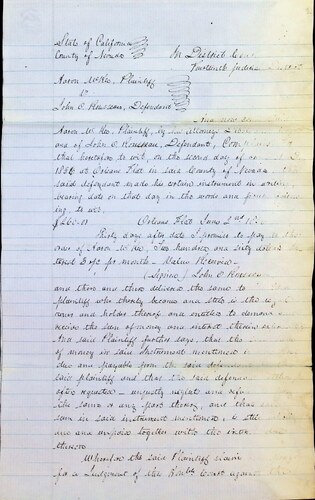 State of California
County of Nevada
In District Court
Fourteenth Judicial
Aaron McKee, Plaintiff
vs
John C. Rousseau, Defendant
And now
Aaron McKee, Plaintiff, by his Attorney
of John C. Rousseau, Defendant, Complains
that heretofore to wit, on the second day of
1856 at Orleans Flat in said County of Nevada
said defendant made his certain instrument in writing
bearing date on that day in the words and
to wit.
Orleans Flat June 2nd
Thirty days after date I promise to pay to
order of Aaron McKee, Two hundred and sixty dollars
per month - Value Received
(Signed) John C Rousseau
and then and there delivered the same to
plaintiff who thereby became and still is the
owner and holder thereof and entitled to demand
receive the sum of money and interest therein
the said Plaintiff further says, that the
of money in said Instrument mentioned is
due and payable from the said defendant
said plaintiff and that the said defendant
often requested - neglect and
the same or any part thereof, and that
sum in said Instrument mentioned, is still
due and unpaid together with the
thereon
Wherefore the said Plaintiff claims
for a Judgment of this Court against the